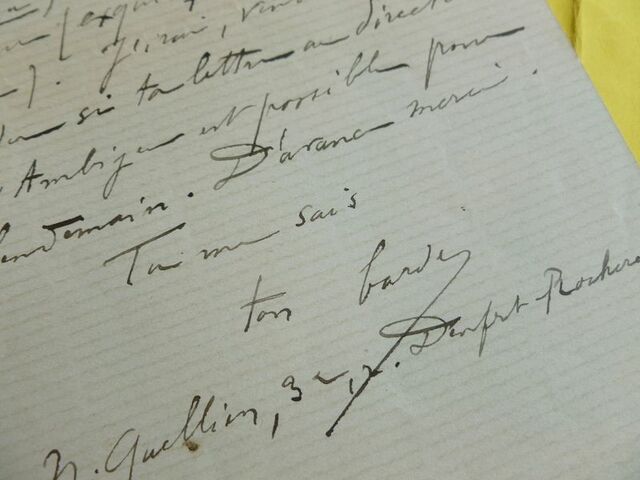 si ta lettre au direct
Ambigu est possible pour
lendemain. D'avance merci.
Tu me sais
ton barde
N. Quellien, r. Denfert-Rochere